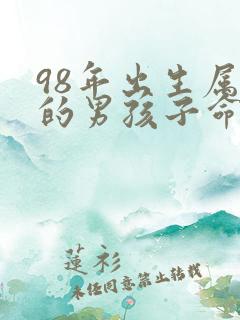 98年出生属
的男孩子命
莲衫
未经同意禁止转载